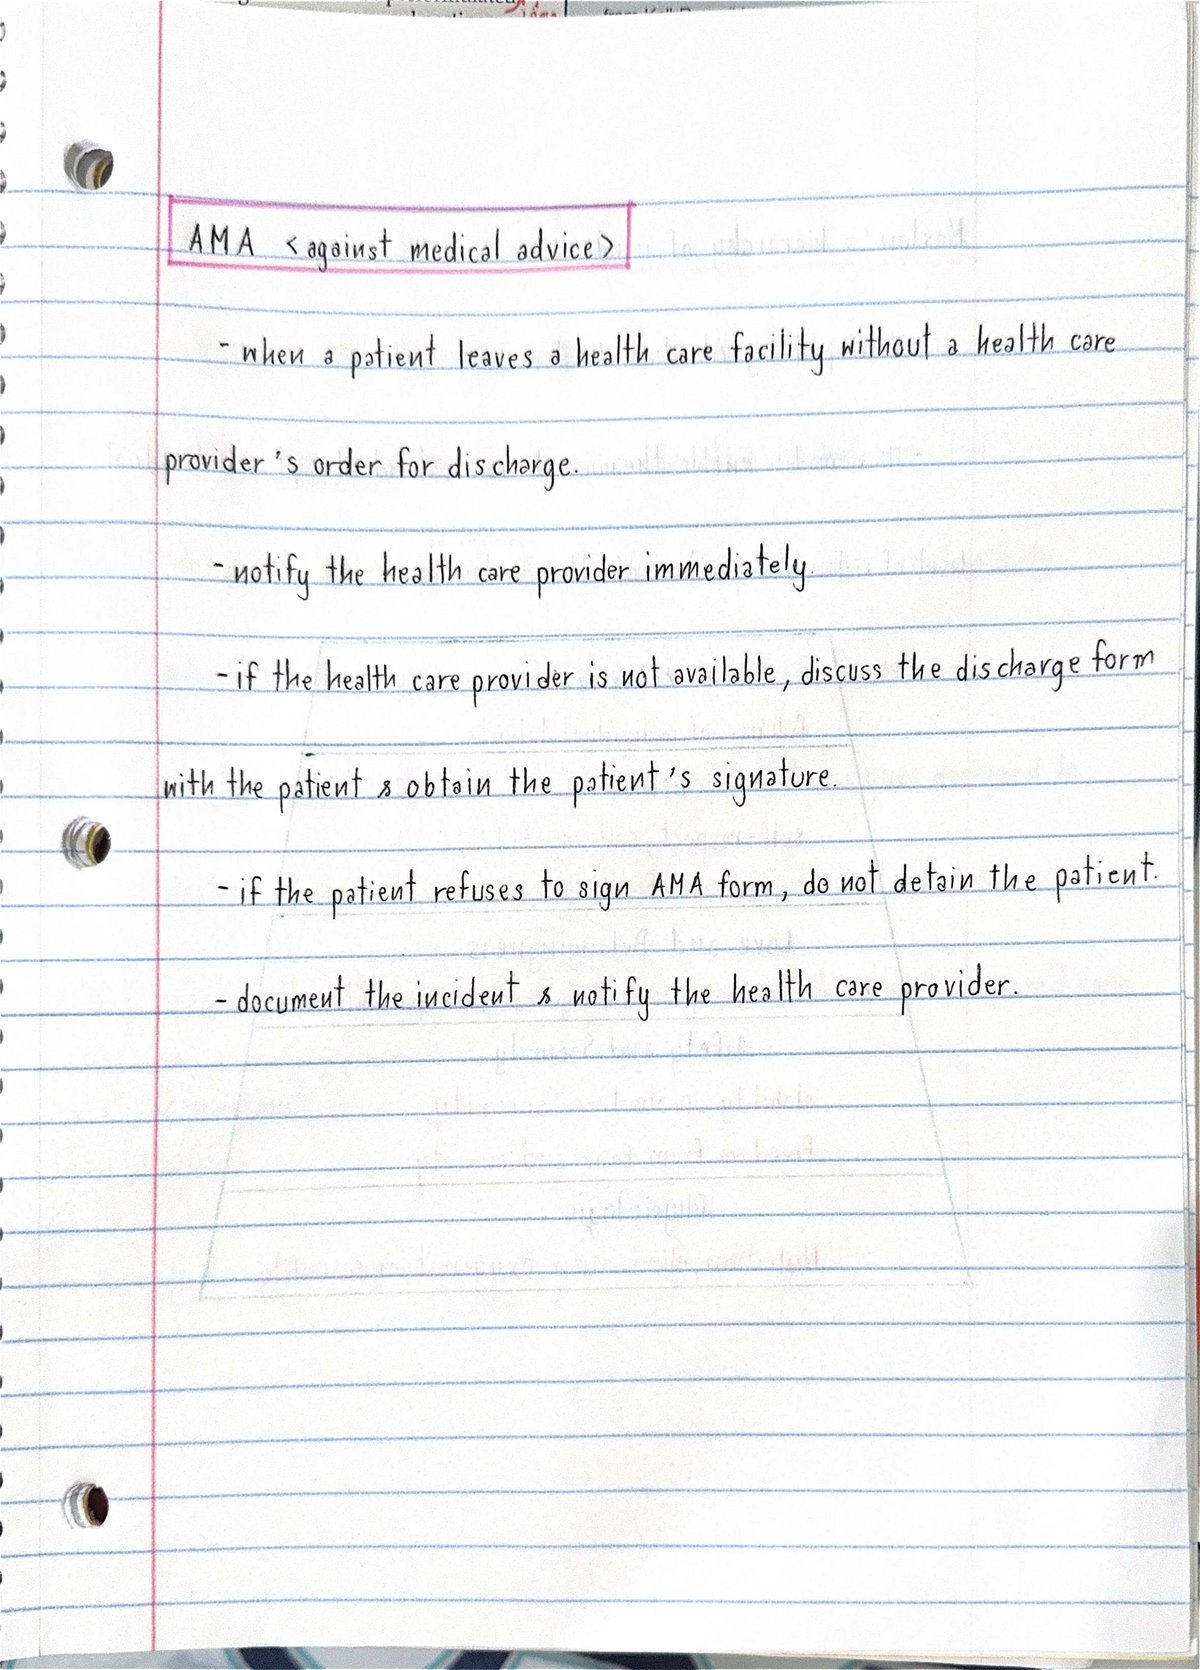 AMA <against medical advice>
- when a patient leaves a health care facility without a health care
provider's order for discharge.
- notify the health care provider immediately.
- if the health care provider is not available, discuss the discharge form
with the patient & obtain the patient's signature.
- if the patient refuses to sign AMA form, do not detain the patient.
- document the incident & notify the health care provider.